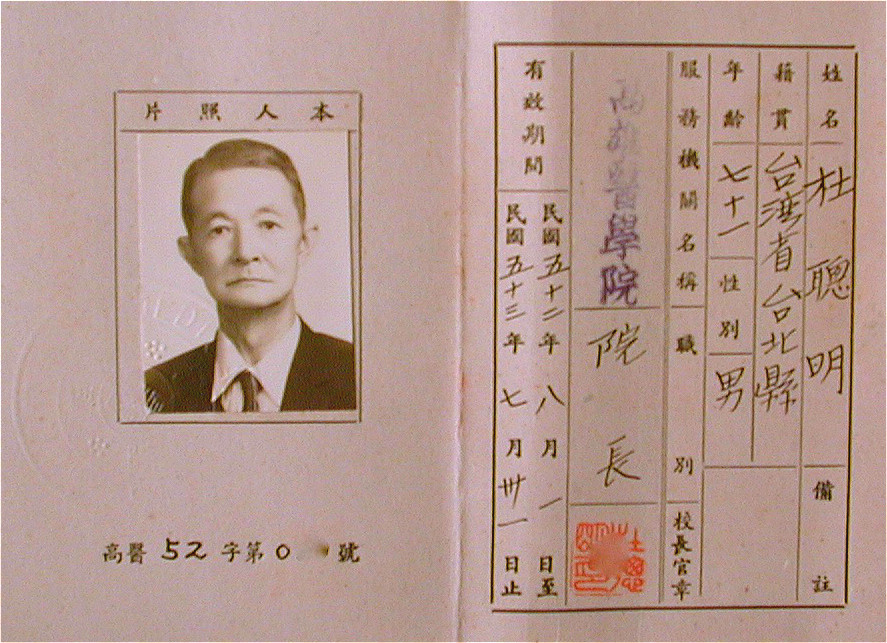 本人照片
高醫52字第0 號
姓名 杜聰明
備註
籍貫 台灣省台北縣
年齡 七十一
性別 男
服務機關名稱 高雄醫學院
職別 院長
校長官章
有效期間
民國五十二年八月一日至
民國五十三年七月卅一日止